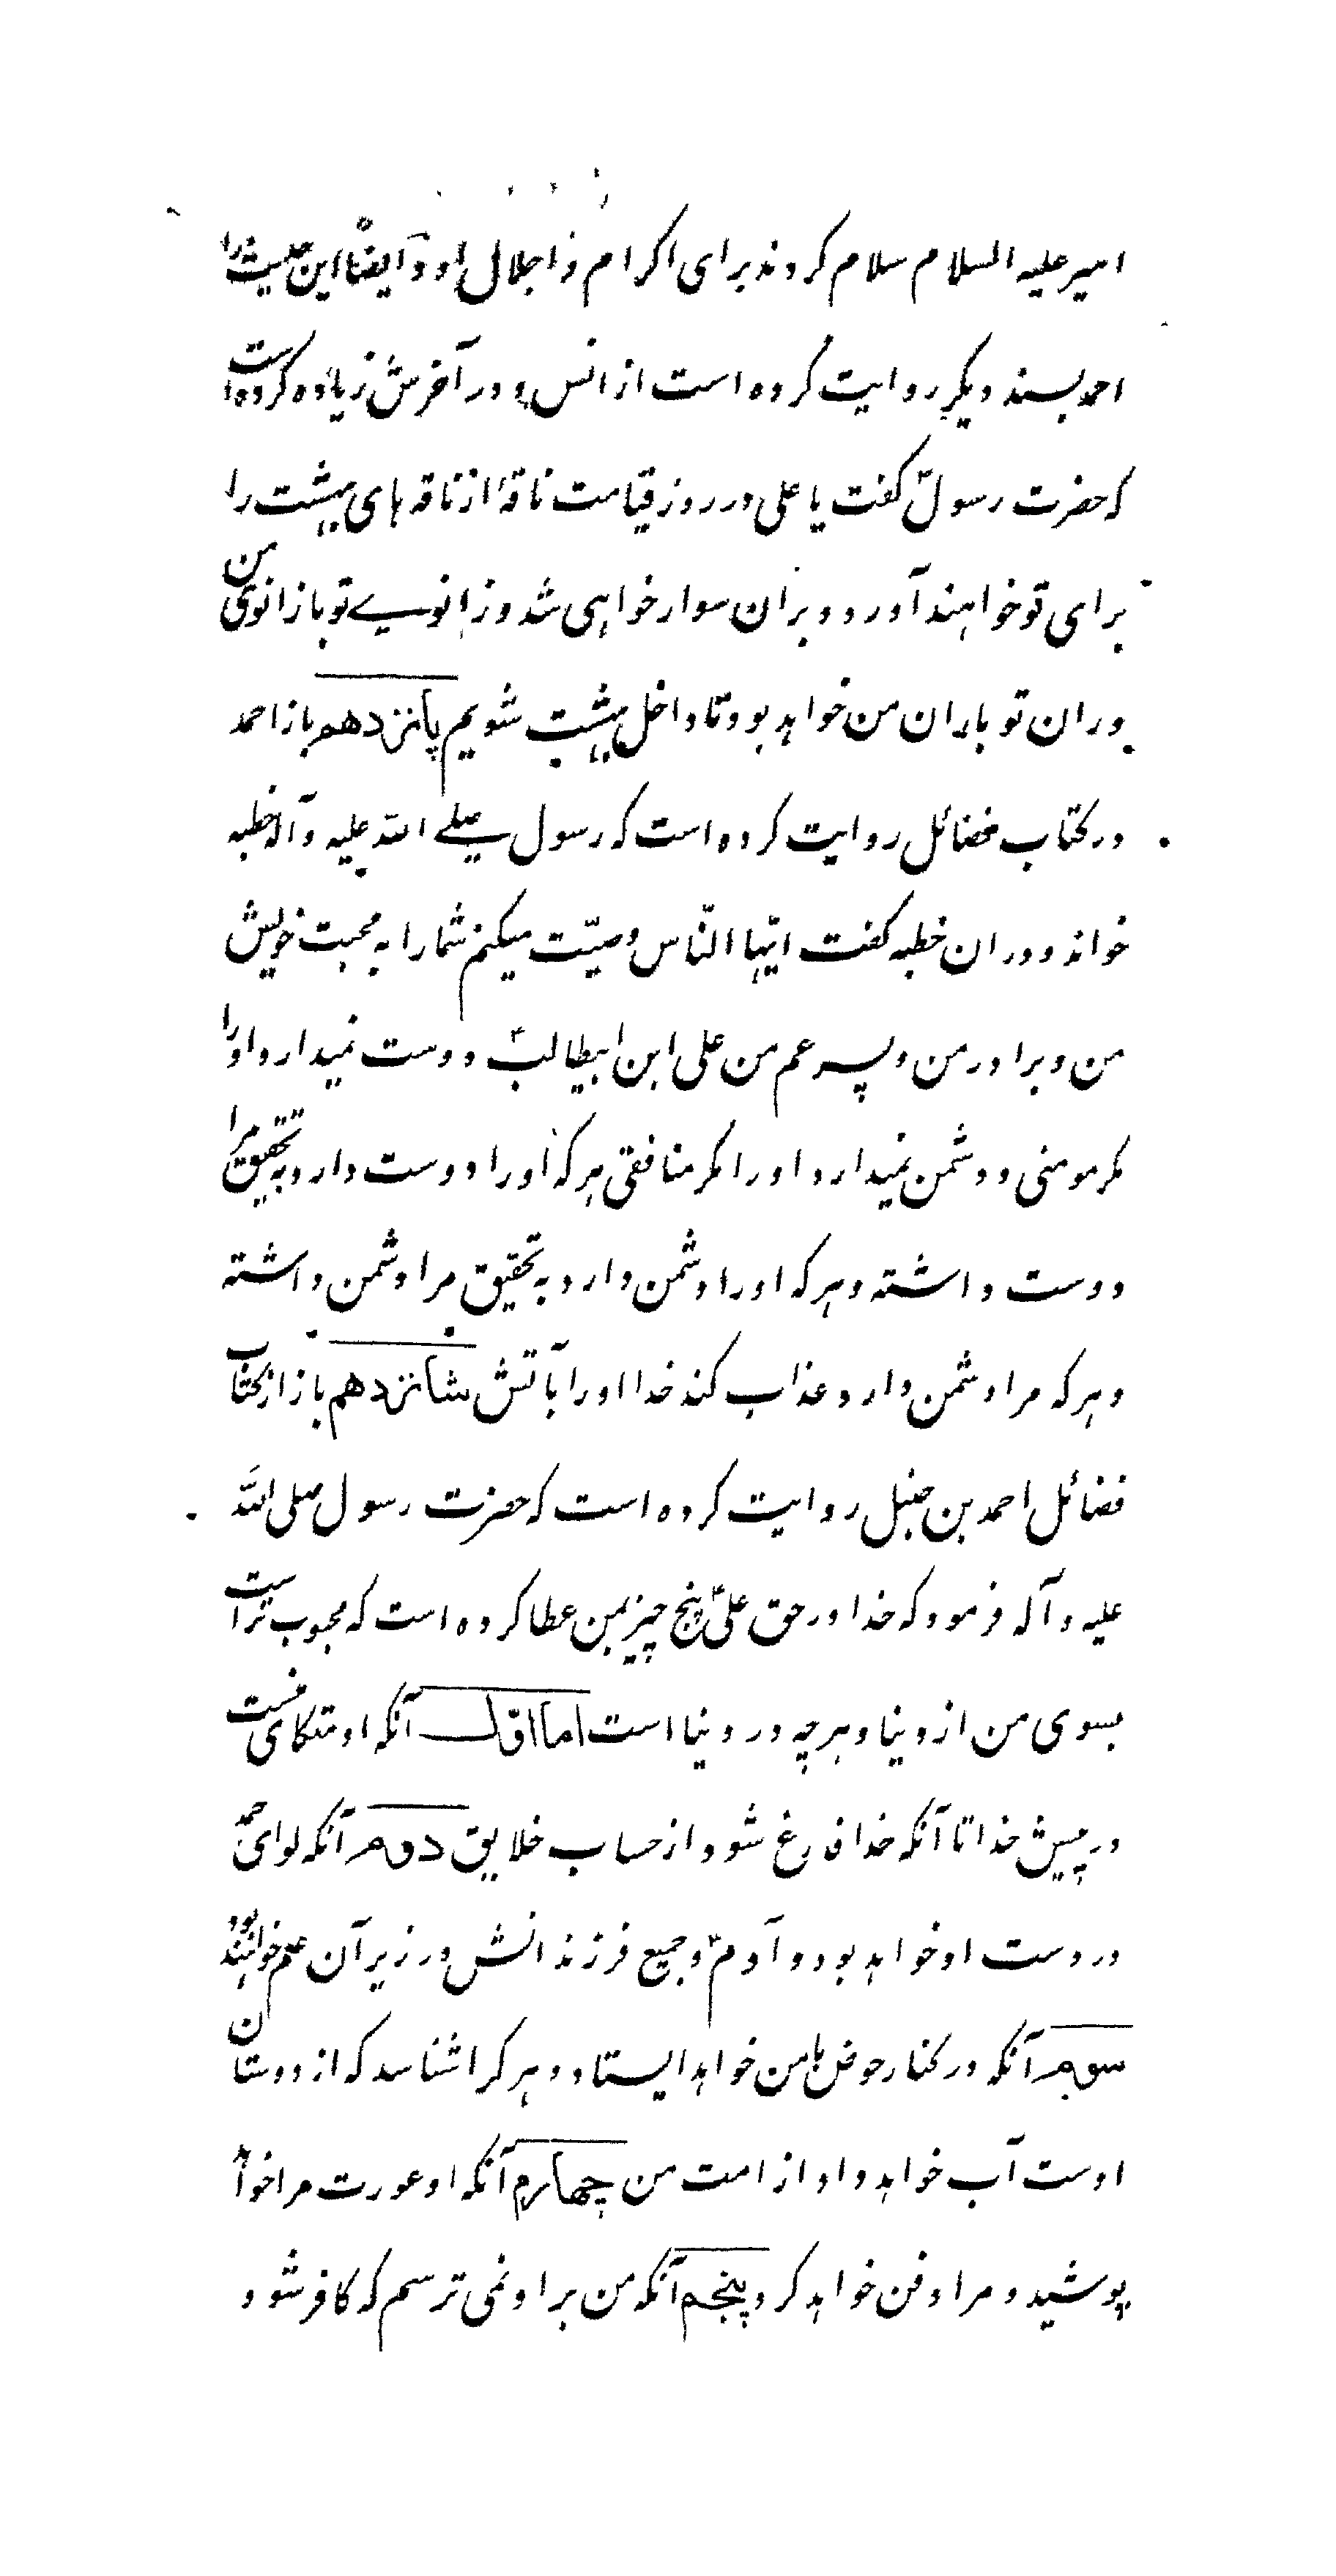 امیر علیه السلام سلام کردند برای اکرام و اجلال او و ایضًا این حدیث را
احمد بسند دیگر روایت کرده است از انس و در آخرش زیاده کرده است
که حضرت رسولؐ گفت یا علی در روز قیامت ناقهٔ از ناقه های بهشت را
برای تو خواهند آورد و بران سوار خواهی شد و زانوے تو با زانوی من
و ران تو با ران من خواهد بود تا داخل بهشت شویم پانزدهم باز احمد
در کتاب فضائل روایت کرده است که رسول صلے الله علیه و آله خطبه
خواند و دران خطبه گفت ایّها النّاس وصیّت میکنم شما را به محبت خویش
من و برادر من و پسر عم من علی ابن ابیطالبؑ دوست نمیدارد او را
مگر مومنی و دشمن نمیدارد او را مگر منافقی هر که او را دوست دارد به تحقیق مرا
دوست داشته و هر که او را دشمن دارد به تحقیق مرا دشمن داشته
و هر که مرا دشمن دارد عذاب کند خدا او را بآتش شانزدهم باز از کتاب
فضائل احمد بن حنبل روایت کرده است که حضرت رسول صلی الله
علیه و آله فرمود که خدا در حق علیؑ پنج چیز بمن عطا کرده است که محبوب تر است
بسوی من از دنیا و هر چه در دنیا است اما اول آنکه او متکای منست
در پیش خدا تا آنکه خدا فارغ شود از حساب خلایق دوم آنکه لوای حمد
در دست او خواهد بود و آدمؑ و جمیع فرزندانش در زیر آن علم خواهند بود
سوم آنکه در کنار حوض با من خواهد ایستاد و هر کرا شناسد که از دوستان
اوست آب خواهد داد از امت من چهارم آنکه او عورت مرا خواهد
پوشید و مرا دفن خواهد کرد پنجم آنکه من بر او نمی ترسم که کافر شود